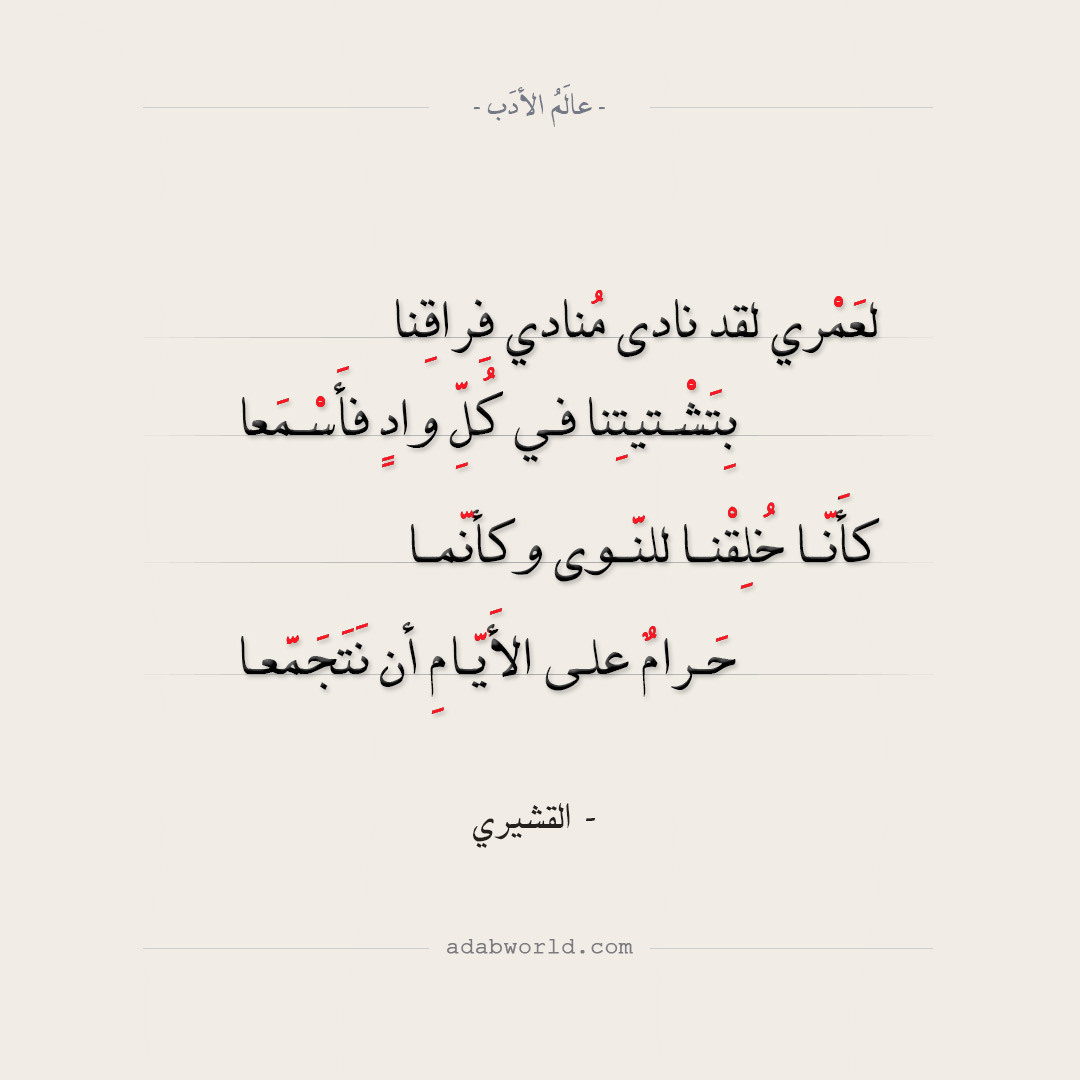 - عالَمُ الأدَب -
لعَمْري لقد نادى مُنادي فِراقِنا
بِتَشْـتيتِنا فـي كُلِّ وادٍ فأَسْـمَعا
كأَنّـا خُلِقْنـا للنّـوى وكأنّمـا
حَـرامٌ علـى الأَيّـامِ أن نَتَجَمّعـا
- القشيري
adabworld.com